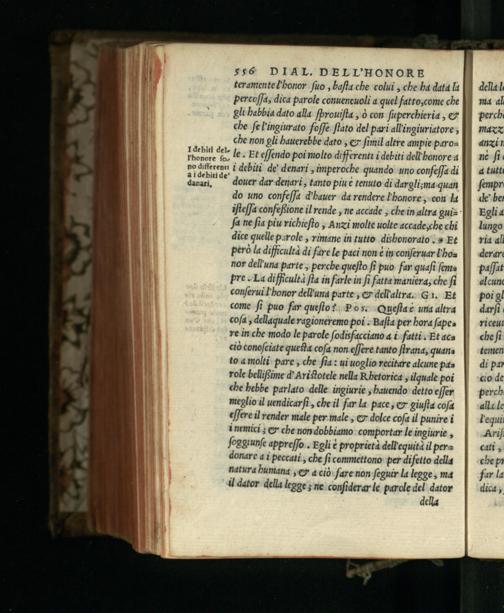 556 DIAL. DELL'HONORE
teramente l'honor suo, basta che colui, che ha data la
percossa, dica parole conueneuoli a quel fatto, come che
gli habbia dato alla sprouista, ò con superchieria, &
che se l'ingiurato fosse stato del pari all'ingiuriatore,
che non gli hauerebbe dato, & simil altre ampie paro=
le. Et essendo poi molto differenti i debiti dell'honore a
i debiti de' denari, imperoche quando uno confessa di
douer dar denari, tanto piu è tenuto di dargli; ma quan
do uno confessa d'hauer da rendere l'honore, con la
istessa confeßione il rende, ne accade, che in altra gui=
sa ne sia piu richiesto, Anzi molte uolte accade, che chi
dice quelle parole, rimane in tutto dishonorato. Et
però la difficultà di fare le paci non è in conseruar l'ho=
nor dell'una parte, perche questo si puo far quasi sem=
pre. La difficultà sta in farle in si fatta maniera, che si
conserui l'honor dell'una parte, & dell'altra. GI. Et
come si puo far questo? POS. Questa è una altra
cosa, dellaquale ragioneremo poi. Basta per hora sape=
re in che modo le parole sodisfacciano a i fatti. Et ac=
ciò conosciate questa cosa non essere tanto strana, quan=
to a molti pare, che sia: ui uoglio recitare alcune pa=
role bellißime d'Aristotele nella Rhetorica, ilquale poi
che hebbe parlato delle ingiurie, hauendo detto esser
meglio il uendicarsi, che il far la pace, & giusta cosa
essere il render male per male, & dolce cosa il punire i
i nemici; & che non dobbiamo comportar le ingiurie,
soggiunse appresso. Egli è proprietà dell'equità il per=
donare a i peccati, che si commettono per difetto della
natura humana, & a ciò fare non seguir la legge, ma
il dator della legge; ne considerar le parole del dator
della
I debiti del
l'honore so=
no differenti
a i debiti de'
danari.